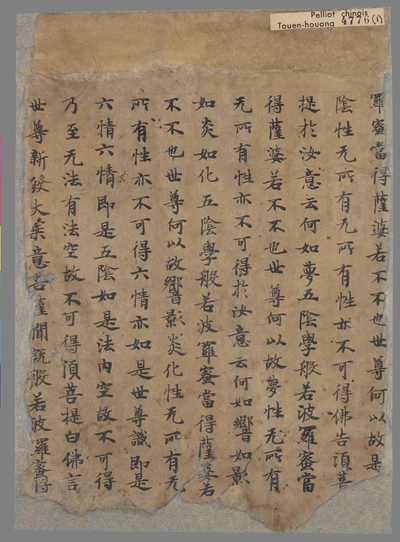 Pelliot chinois
Touen-houang 4776(1)
羅蜜當得薩婆若不不也世尊何以故是
陰性无所有无所有性亦不可得佛告湏菩
提於汝意云何如夢五陰學般若波羅蜜當
得薩婆若不不也世尊何以故夢性无所有
无所有性亦不可得於汝意云何如響如影
如炎如化五陰學般若波羅蜜當得薩婆若
不不也世尊何以故響影炎化性无所有无
所有性亦不可得六情亦如是世尊識即是
六情六情即是五陰如是法內空故不可得
乃至无法有法空故不可得湏菩提白佛言
世尊新發大乘意菩薩聞說般若波羅蜜得